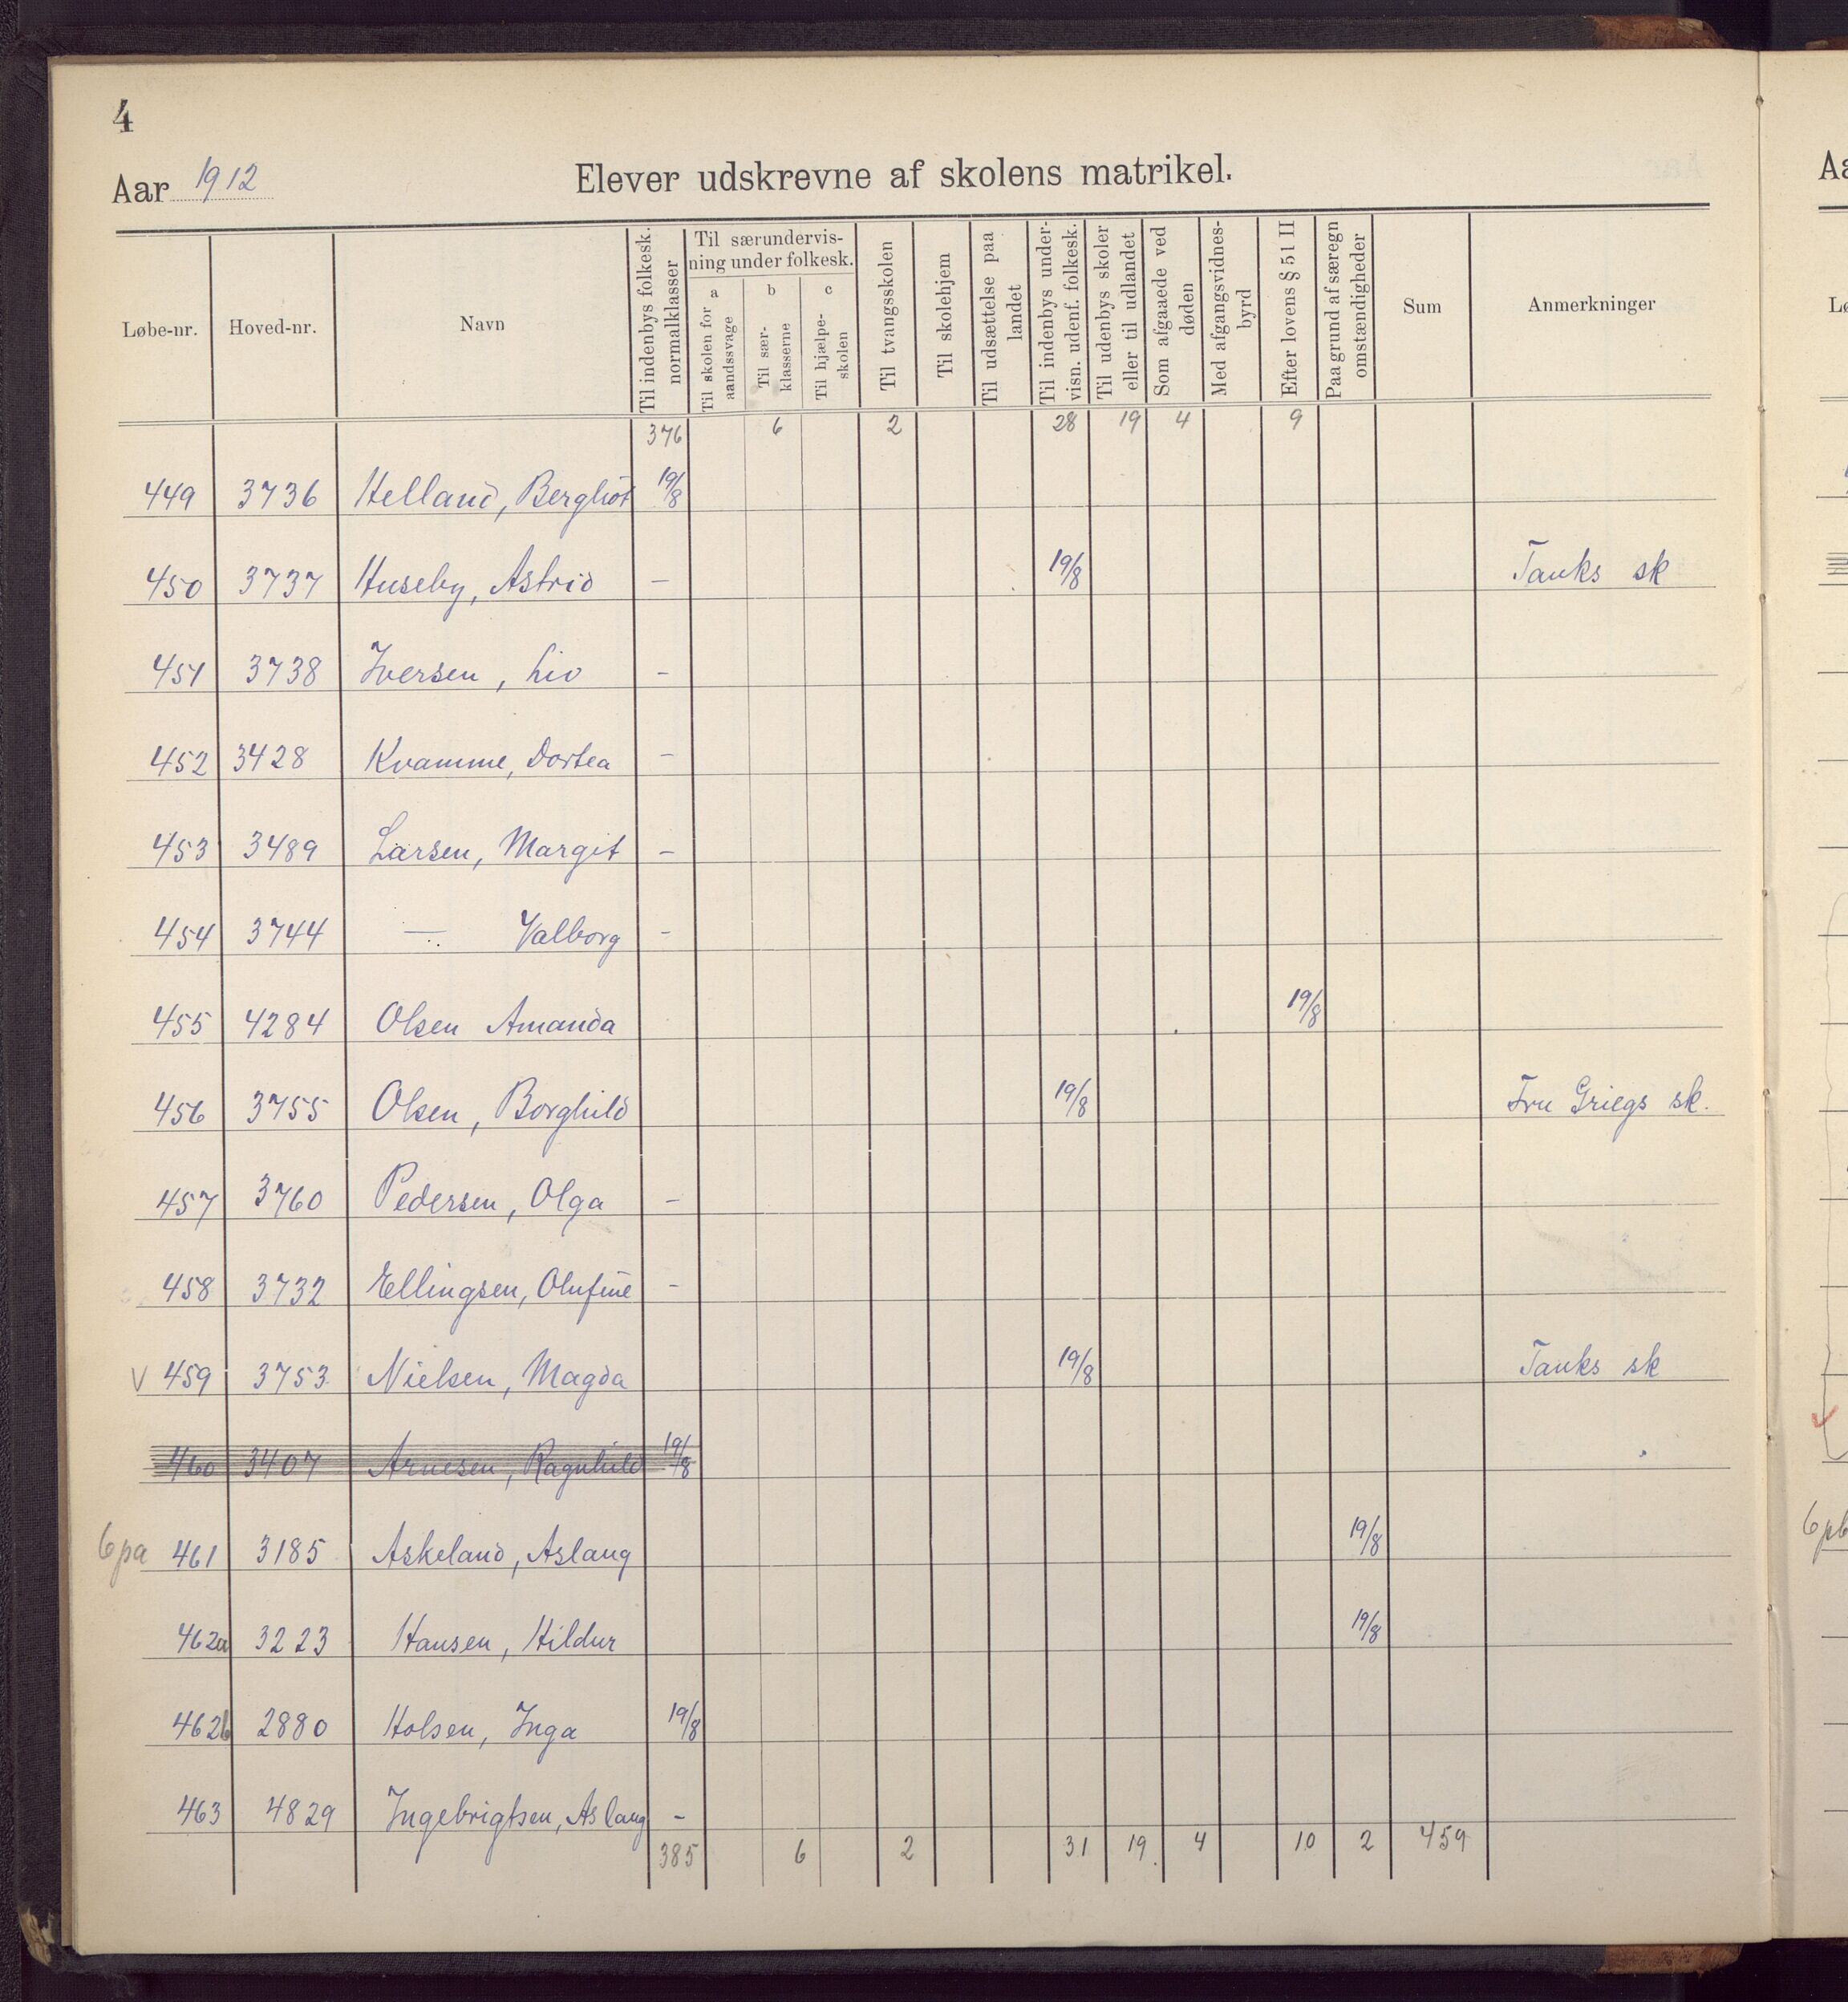 4
Aar 1912
Elever udskrevne af skolens matrikel.
Løbe-nr. Hoved-nr. Navn
Til indenbys folkesk. normalklasser
Til særundervis-
ning under folkesk.
a Til skolen for aandssvage
b Til sær-klasserne
c Til hjælpe-skolen
Til tvangsskolen
Til skolehjem
Til udsættelse paa landet
Til indenbys under-visn. udenf. folkesk.
Til udenbys skoler eller til udlandet
Som afgaaede ved døden
Med afgangsvidnes-byrd
Efter lovens § 51 II
Paa grund af særegn omstændigheder
Sum
Anmerkninger
376 6 2 28 19 4 9
449 3736 Helland, Bergliot 19/8
450 3737 Huseby, Astrid — 19/8 Tanks sk
451 3738 Iversen, Liv -
452 3428 Kvamme, Dortea -
453 3489 Larsen, Margit -
454 3744 — Valborg -
455 4284 Olsen Amanda 19/8
456 3755 Olsen, Borghild 19/8 Fru Griegs sk.
457 3760 Pedersen, Olga -
458 3732 Ellingsen, Olufine -
V 459 3753 Nielsen, Magda 19/8 Tanks sk
460 3407 Arnesen, Ragnhild 19/8
6pa 461 3185 Askeland, Aslaug 19/8
462a 3223 Hansen, Hildur 19/8
462b 2880 Holsen, Inga 19/8
463 4829 Ingebrigtsen, Aslaug -
385 6 2 31 19 4 10 2 459